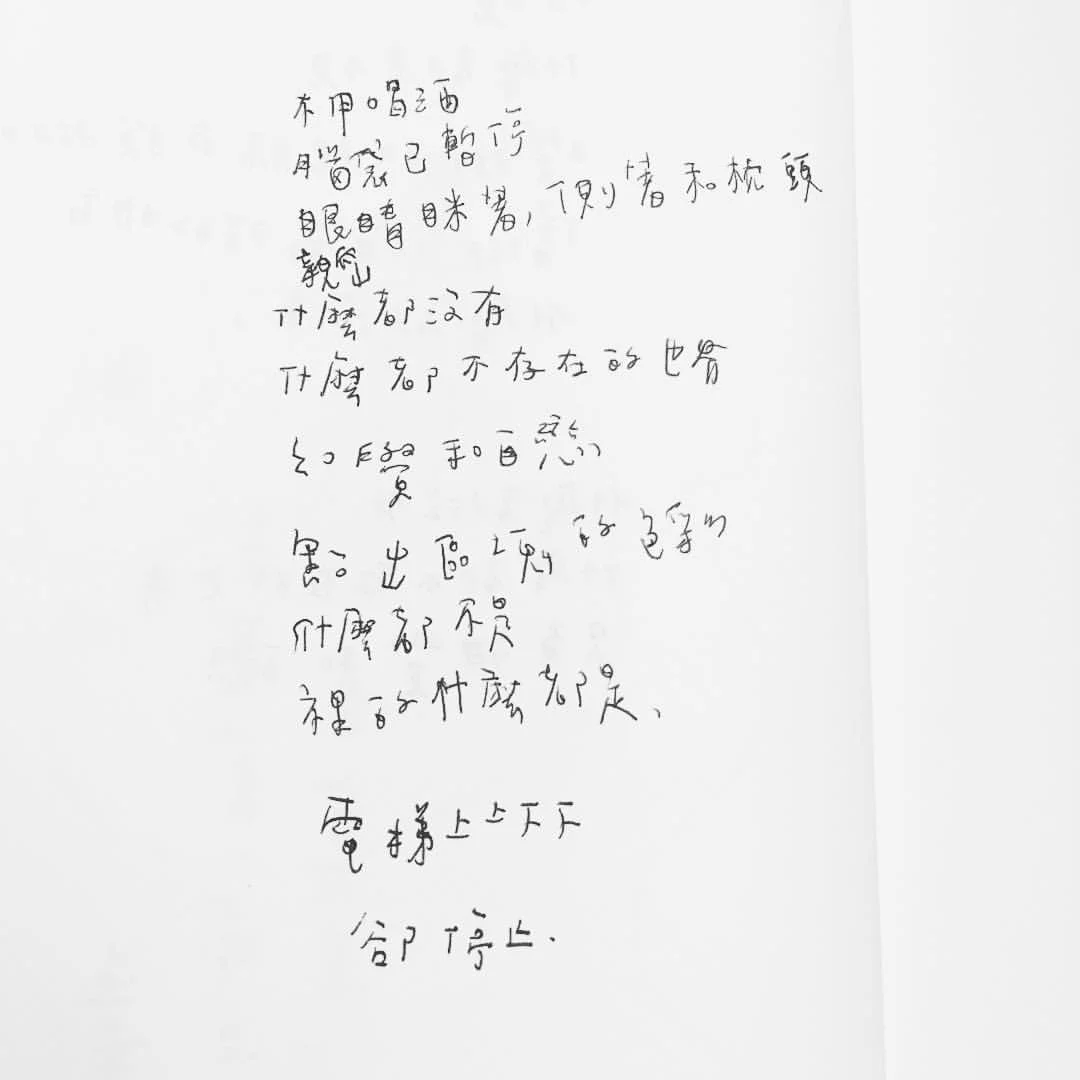 不用喝酒
腦袋已暫停
眼睛瞇著,側著和枕頭
親密
什麼都沒有
什麼都不存在的世界
知覺和自戀
割出區塊的色彩
什麼都不是
裡的什麼都是、
電梯上上下下
卻停止.